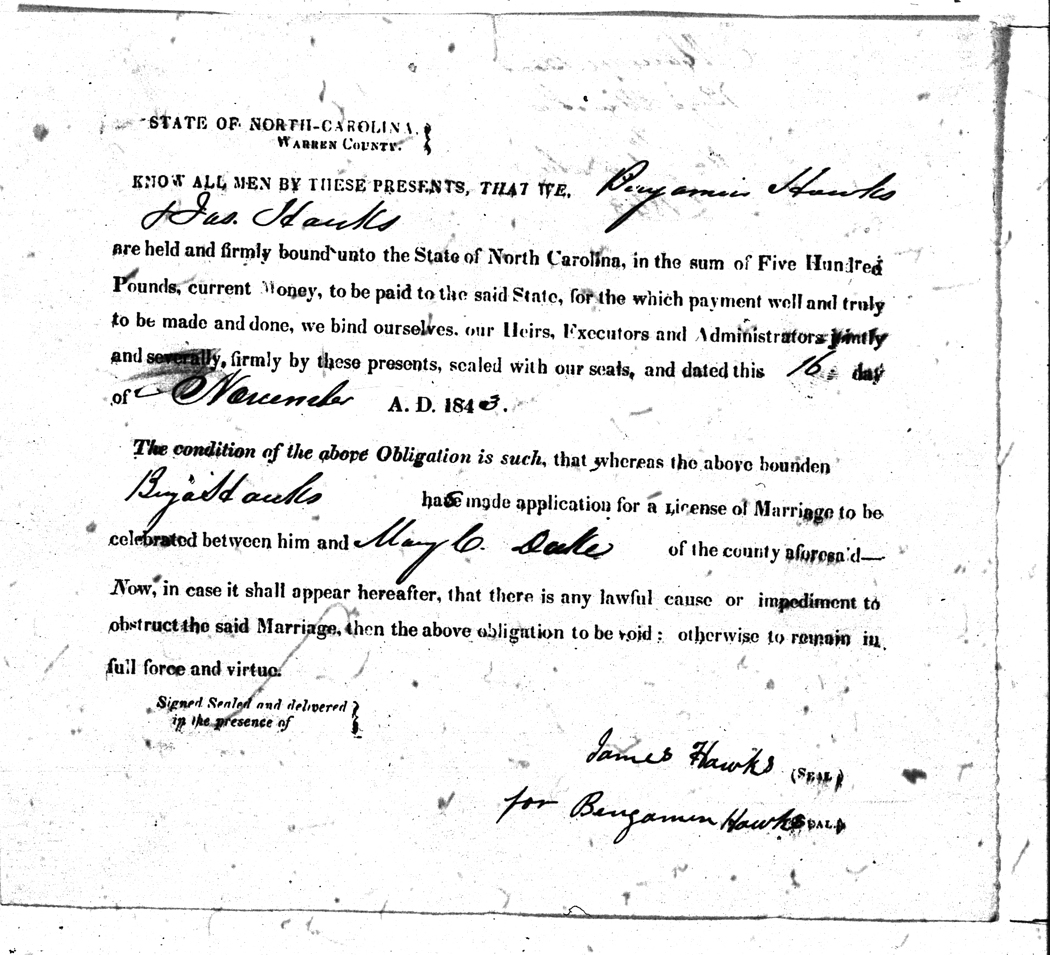 STATE OF NORTH-CAROLINA.
WARREN COUNTY.
KNOW ALL MEN BY THESE PRESENTS, THAT WE, Benjamin Hawks
& Jas. Hawks
are held and firmly bound unto the State of North Carolina, in the sum of Five Hundred
Pounds, current Money, to be paid to the said State, for the which payment well and truly
to be made and done, we bind ourselves. our Heirs, Executors and Administrators jointly
and severally, firmly by these presents, sealed with our seals, and dated this 16 day
of November A. D. 1843.
The condition of the above Obligation is such, that whereas the above bounden
Benja Hawks has made application for a License of Marriage to be
celebrated between him and Mary C. of the county aforesa'd—
Now, in case it shall appear hereafter, that there is any lawful cause or impediment to
obstruct the said Marriage, then the above obligation to be void: otherwise to remain in
full force and virtue.
Signed Sealed and delivered
in the presence of
James Hawks (SEAL)
for Bengamen Hawks SEAL)